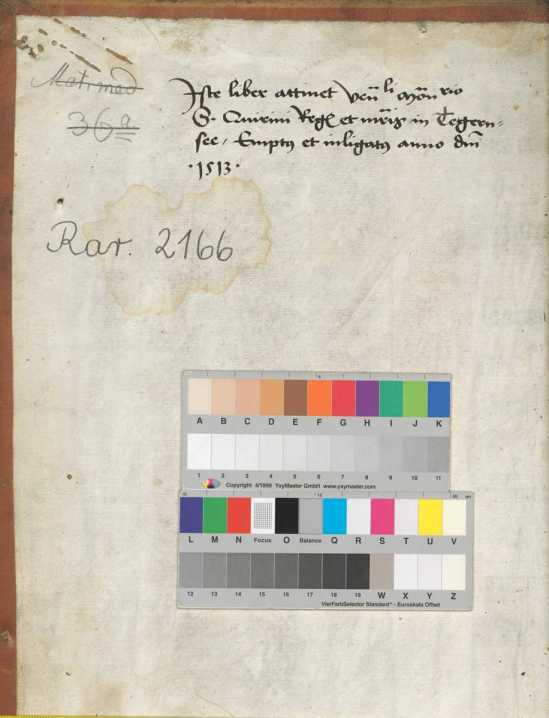 Mat. med
36a
Iste liber attinet Ven̄li Mōn rio
S. Quirini Reg. et m̄ris in Tegern=
see, Empt9 et inligat9 anno dm̄
·1513·
Rar. 2166
A B C D E F G H I J K
1 2 3 4 5 6 7 8 9 10 11
Copyright 4/1999 YxyMaster GmbH www.yxymaster.com
L M N Focus O Balance Q R S T U V
12 13 14 15 16 17 18 19 W X Y Z
VierFarbSelector Standard* - Euroskala Offset